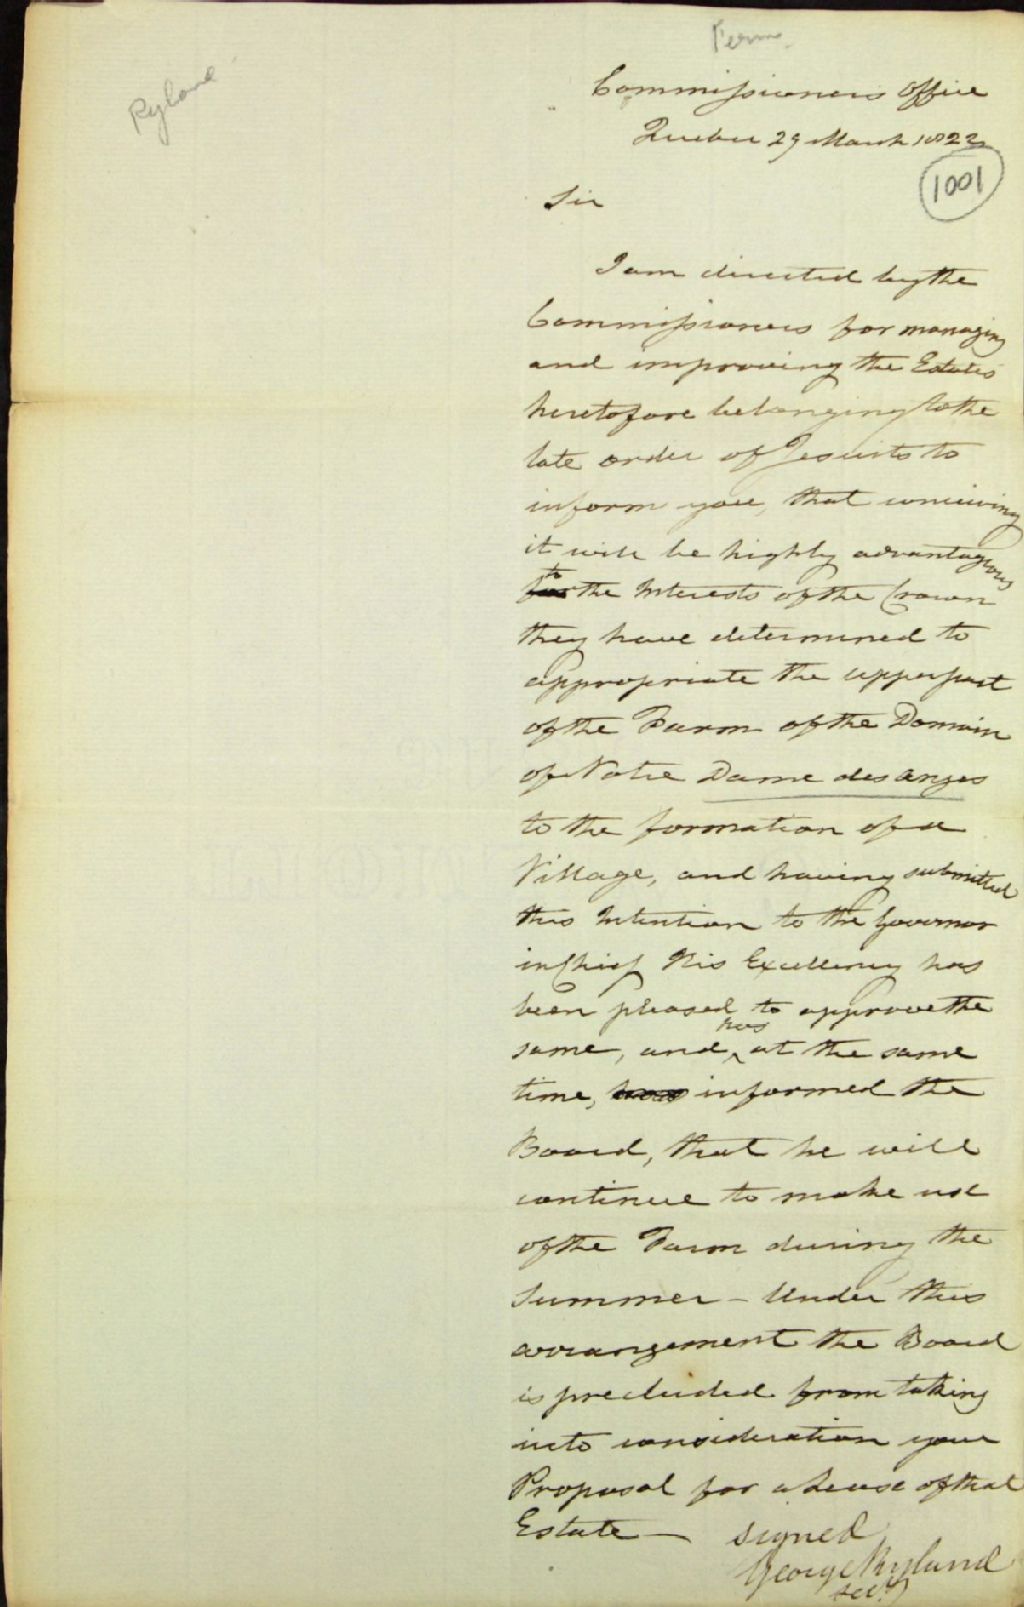 Ferme
Ryland
Commissioners Office
Quebec 29 March 1822
1001
Sir
I am directed by the
Commissioners for managing
and improving the Estates
heretofore belonging to the
late order of Jesuits to
inform you, that conceiving
it will be highly advantageous
to
for the Interests of the Crown
they have determined to
appropriate the upper part
of the Farm of the Domain
of Notre Dame des Anges
to the formation of a
Village, and having submitted
this Intention to the Governor
in Chief His Excellency has
been pleased to approve the
has
same, and ^ at the same
time, has informed the
Board, that he will
continue to make use
of the Farm during the
Summer – Under this
arrangement the Board
is precluded from taking
into consideration your
Proposal for a Lease of that
Estate —
signed
George Ryland
Secy